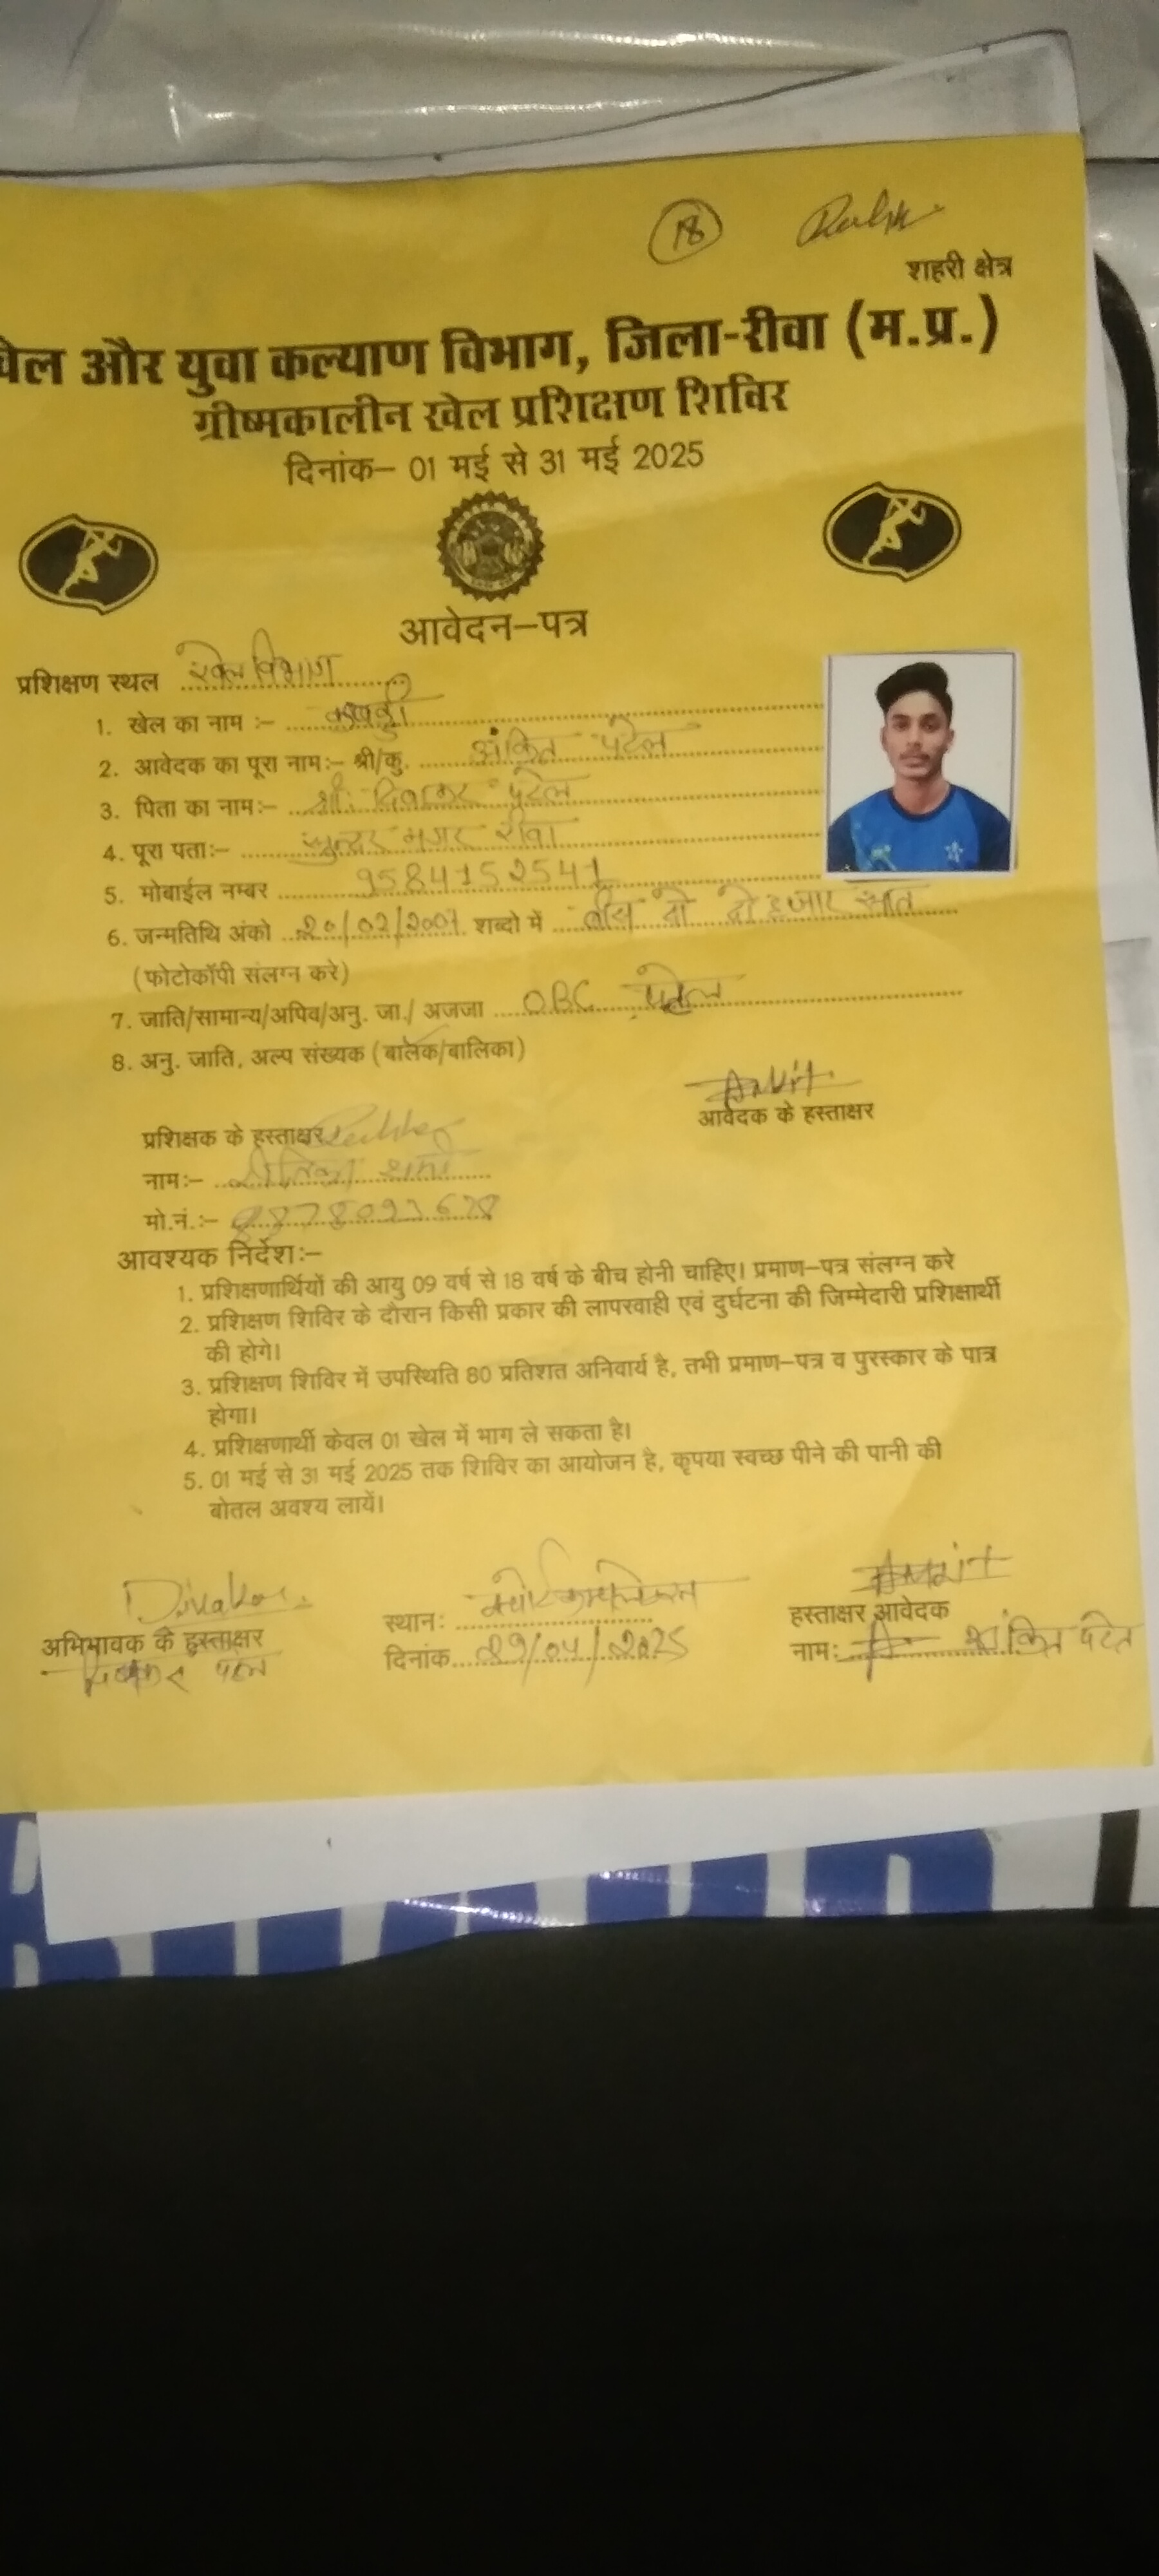 18
शहरी क्षेत्र
खेल और युवा कल्याण विभाग, जिला-रीवा (म.प्र.)
ग्रीष्मकालीन खेल प्रशिक्षण शिविर
दिनांक– 01 मई से 31 मई 2025
आवेदन–पत्र
प्रशिक्षण स्थल खेल विभाग
1. खेल का नाम :– कबड्डी
2. आवेदक का पूरा नामः– श्री/कु. अंकित पटेल
3. पिता का नामः– श्री. दिवाकर पटेल
4. पूरा पताः– सुन्दर नगर रीवा
5. मोबाईल नम्बर 9584152541
6. जन्मतिथि अंको 20/02/2007 शब्दो में बीस दो दो हजार सात
(फोटोकॉपी संलग्न करे)
7. जाति/सामान्य/अपिव/अनु. जा./ अजजा OBC पटेल
8. अनु. जाति, अल्प संख्यक (बालक/बालिका)
Ankit
आवेदक के हस्ताक्षर
प्रशिक्षक के हस्ताक्षर
नामः– शर्मा
मो.नं.:–
आवश्यक निर्देशः–
1. प्रशिक्षणार्थियों की आयु 09 वर्ष से 18 वर्ष के बीच होनी चाहिए। प्रमाण–पत्र संलग्न करे
2. प्रशिक्षण शिविर के दौरान किसी प्रकार की लापरवाही एवं दुर्घटना की जिम्मेदारी प्रशिक्षार्थी
की होगे।
3. प्रशिक्षण शिविर में उपस्थिति 80 प्रतिशत अनिवार्य है, तभी प्रमाण–पत्र व पुरस्कार के पात्र
होगा।
4. प्रशिक्षणार्थी केवल 01 खेल में भाग ले सकता है।
5. 01 मई से 31 मई 2025 तक शिविर का आयोजन है, कृपया स्वच्छ पीने की पानी की
बोतल अवश्य लायें।
Divakar
अभिभावक के हस्ताक्षर
दिवाकर पटेल
स्थानः
दिनांक 29/04/2025
Ankit
हस्ताक्षर आवेदक
नामः अंकित पटेल